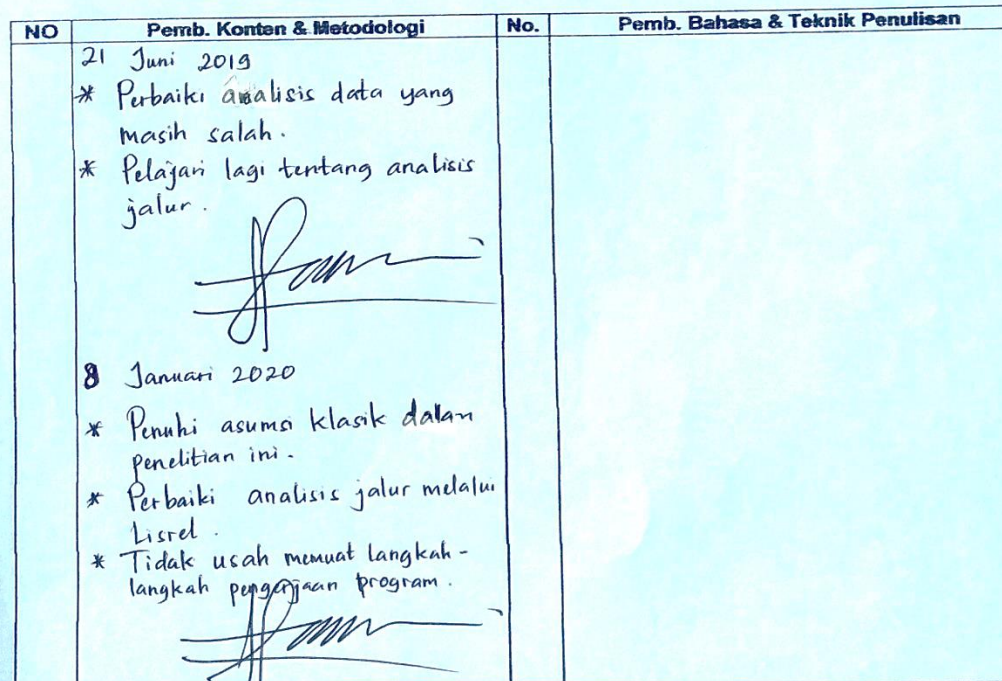 NO Pemb. Konten & Metodologi No. Pemb. Bahasa & Teknik Penulisan
21 Juni 2019
* Perbaiki analisis data yang
masih salah.
* Pelajari lagi tentang analisis
jalur.
8 Januari 2020
* Penuhi asumsi klasik dalam
penelitian ini.
* Perbaiki analisis jalur melalui
Lisrel.
* Tidak usah memuat langkah-
langkah pengerjaan program.